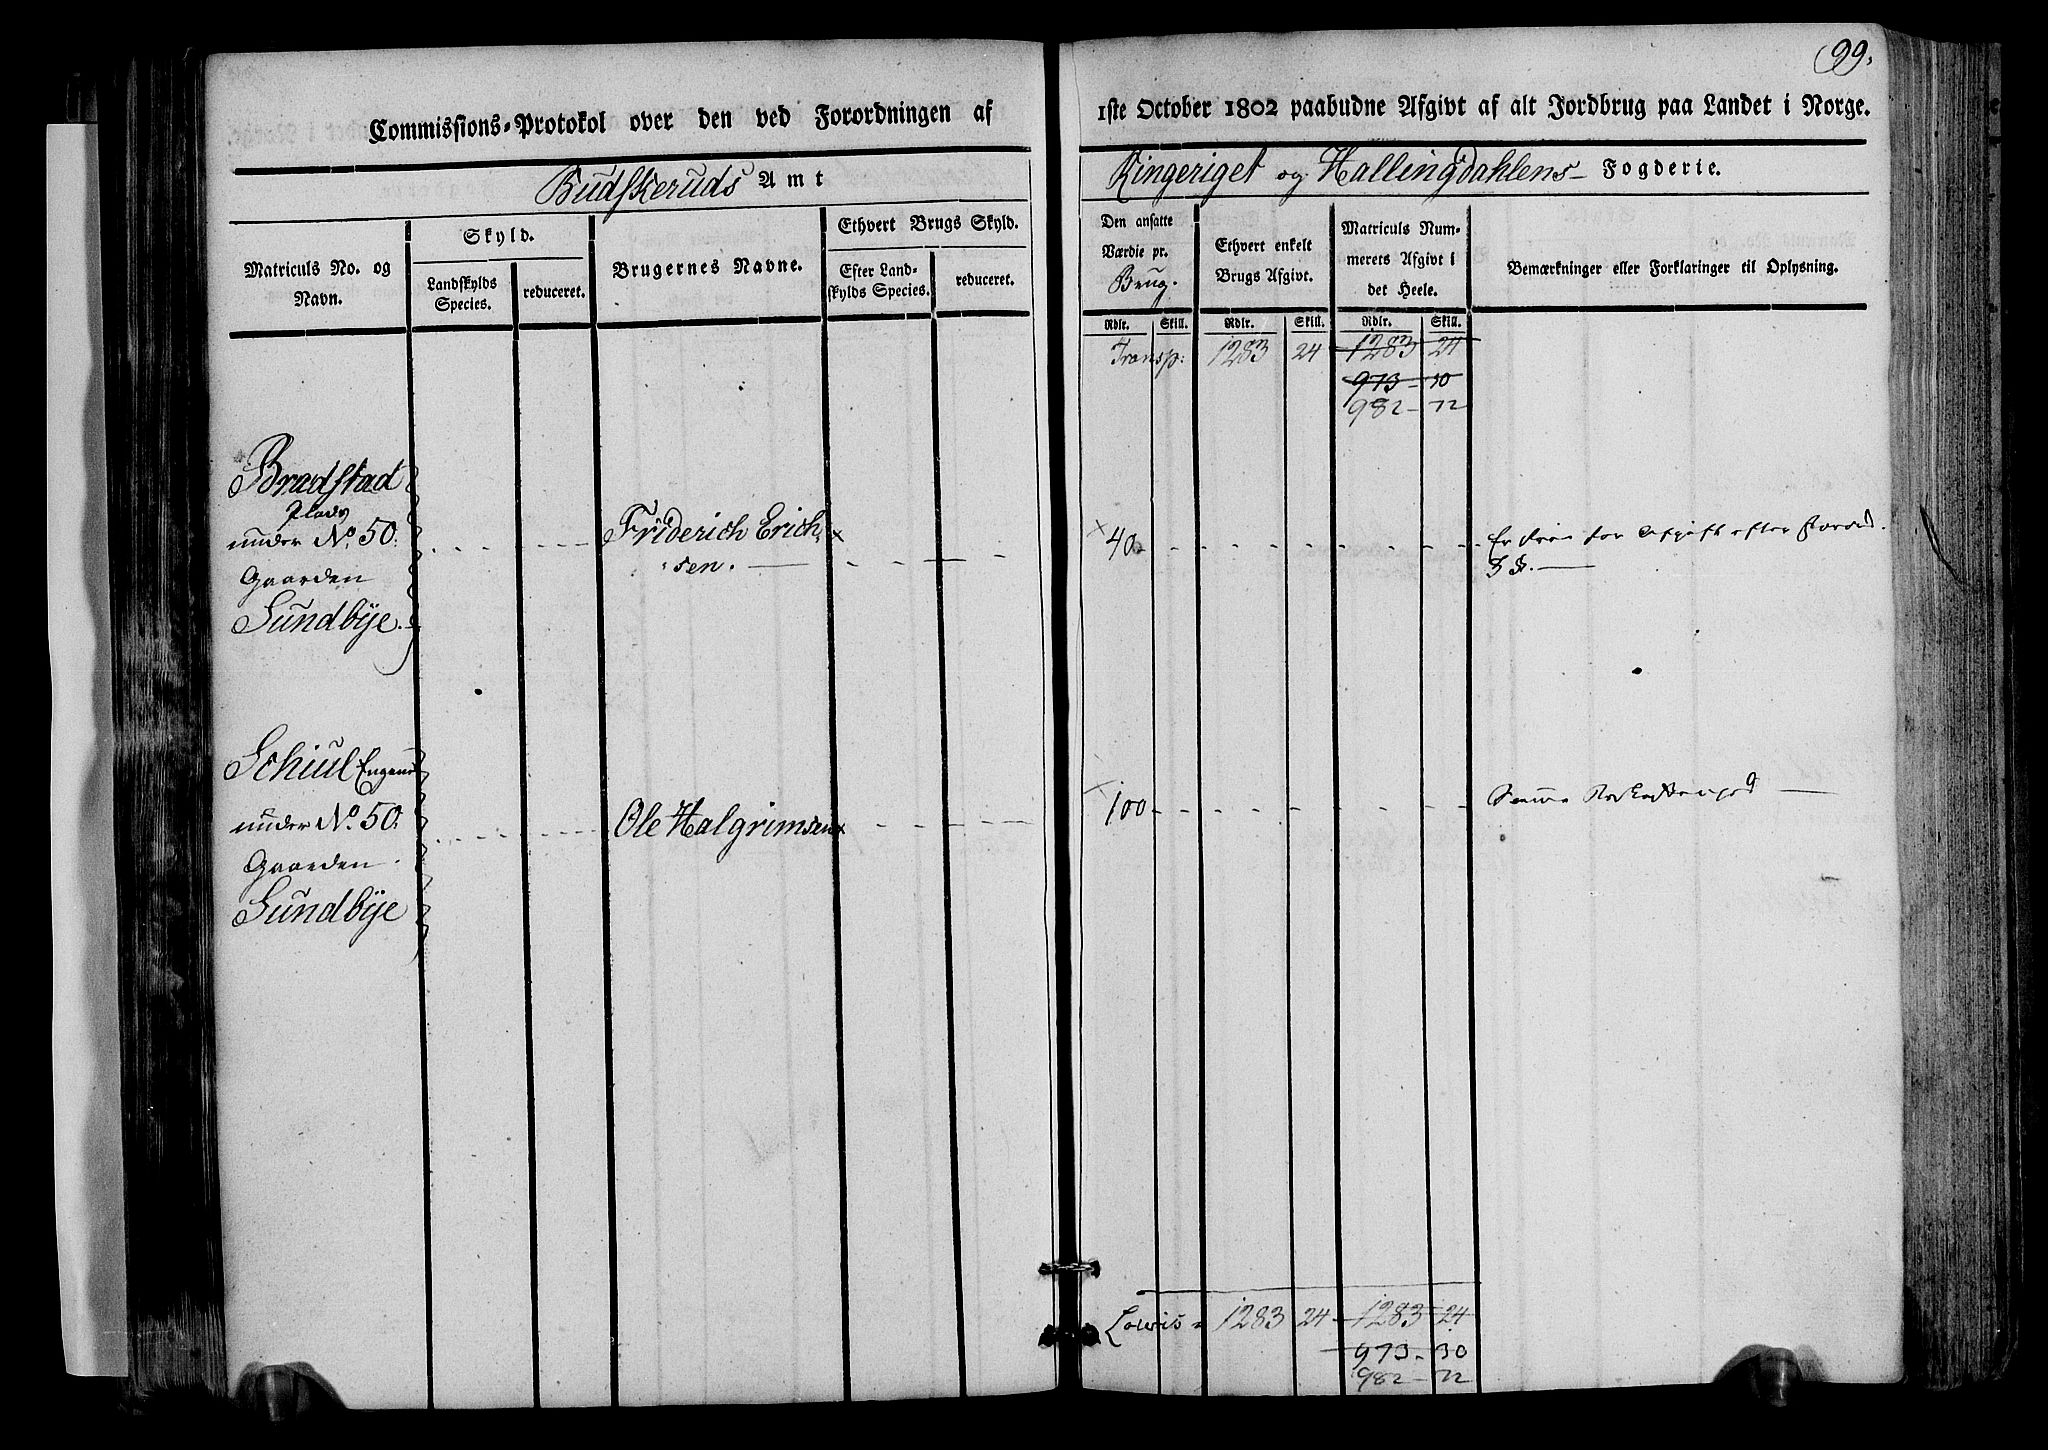 99.
Commissions-Protokol over den ved Forordningen af 1ste October 1802 paabudne Afgivt af alt Jordbrug paa Landet i Norge.
Budskeruds Amt
Ringeriget og Hallingdahlens Fogderie.
Matriculs No. og Navn.
Skyld.
Landskylds Species.
reduceret.
Brugernes Navne.
Ethvert Brugs Skyld.
Efter Landskylds Species.
reduceret.
Den ansatte Værdie pr. Brug.
Ethvert enkelt Brugs Afgivt.
Matriculs Nummerets Afgivt i det Heele.
Bemærkninger eller Forklaringer til Oplysning.
Rdlr. Skill. Rdlr. Skill. Rdlr. Skill.
Transp: 1283 24 1283 24
973 - 30
982 - 72
Bradstad
Plads
under No. 50.
Gaarden
Sundbÿe.
Friderich Erich
sen.
40
Er frie for Afgift efter Forord.
Schiul Engene
under No. 50.
Gaarden
Sundbÿe
Ole Halgrimsen
100
Samme
Lateris 1283 24 1283 24
973 - 30
982 - 72